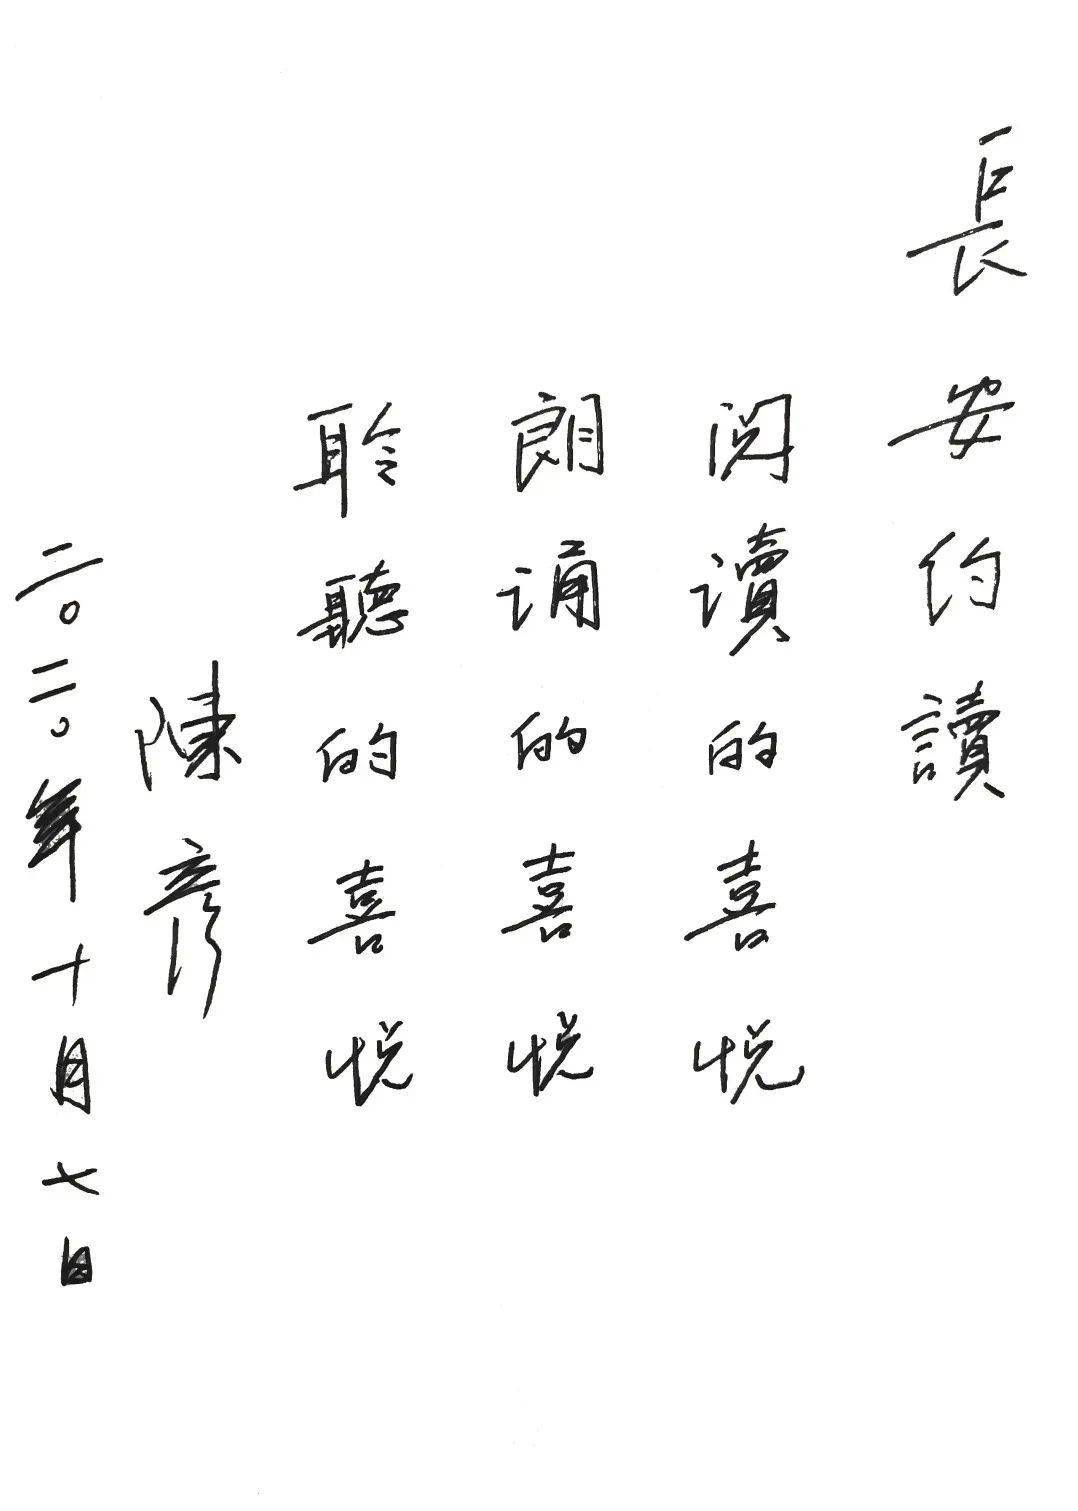 長安约讀
阅讀的喜悦
朗诵的喜悦
聆聽的喜悦
陳彦
二〇二〇年十月七日